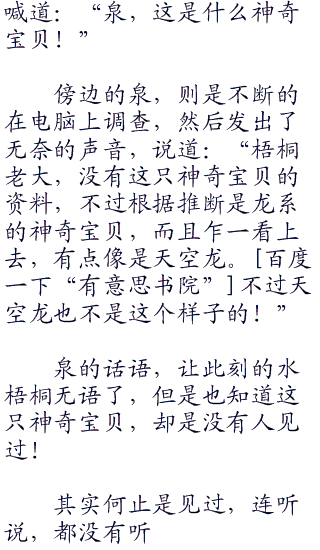 喊道：“泉，这是什么神奇
宝贝！”
傍边的泉，则是不断的
在电脑上调查，然后发出了
无奈的声音，说道：“梧桐
老大，没有这只神奇宝贝的
资料，不过根据推断是龙系
的神奇宝贝，而且乍一看上
去，有点像是天空龙。[百度
一下“有意思书院”]不过天
空龙也不是这个样子的！”
泉的话语，让此刻的水
梧桐无语了，但是也知道这
只神奇宝贝，却是没有人见
过！
其实何止是见过，连听
说，都没有听